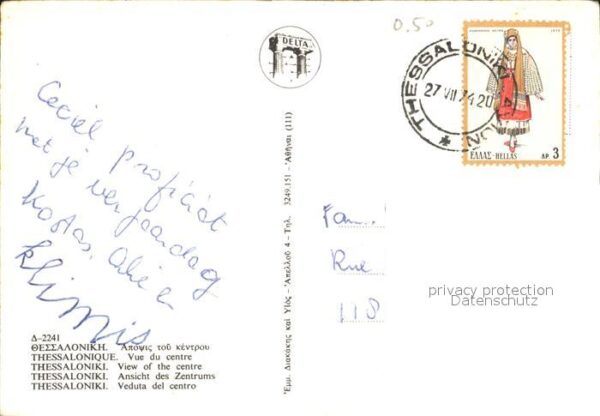 0.50
DELTA
THESSALONIKI
27 VII 74 20
ΕΛΛΑΣ-HELLAS ΔΡ. 3
Ceciel proficiat
met je verjaardag
Kostas,
Klimis
Fam.
Rue
118
privacy protection
Datenschutz
Δ-2241
ΘΕΣΣΑΛΟΝΙΚΗ. Ἄποψις τοῦ κέντρου
THESSALONIQUE. Vue du centre
THESSALONIKI. View of the centre
THESSALONIKI. Ansicht des Zentrums
THESSALONIKI. Veduta del centro
Ἐμμ. Διακάκης καὶ Υἱός - Ἀπελλοῦ 4 - Τηλ. 3249.151 - Ἀθῆναι (111)